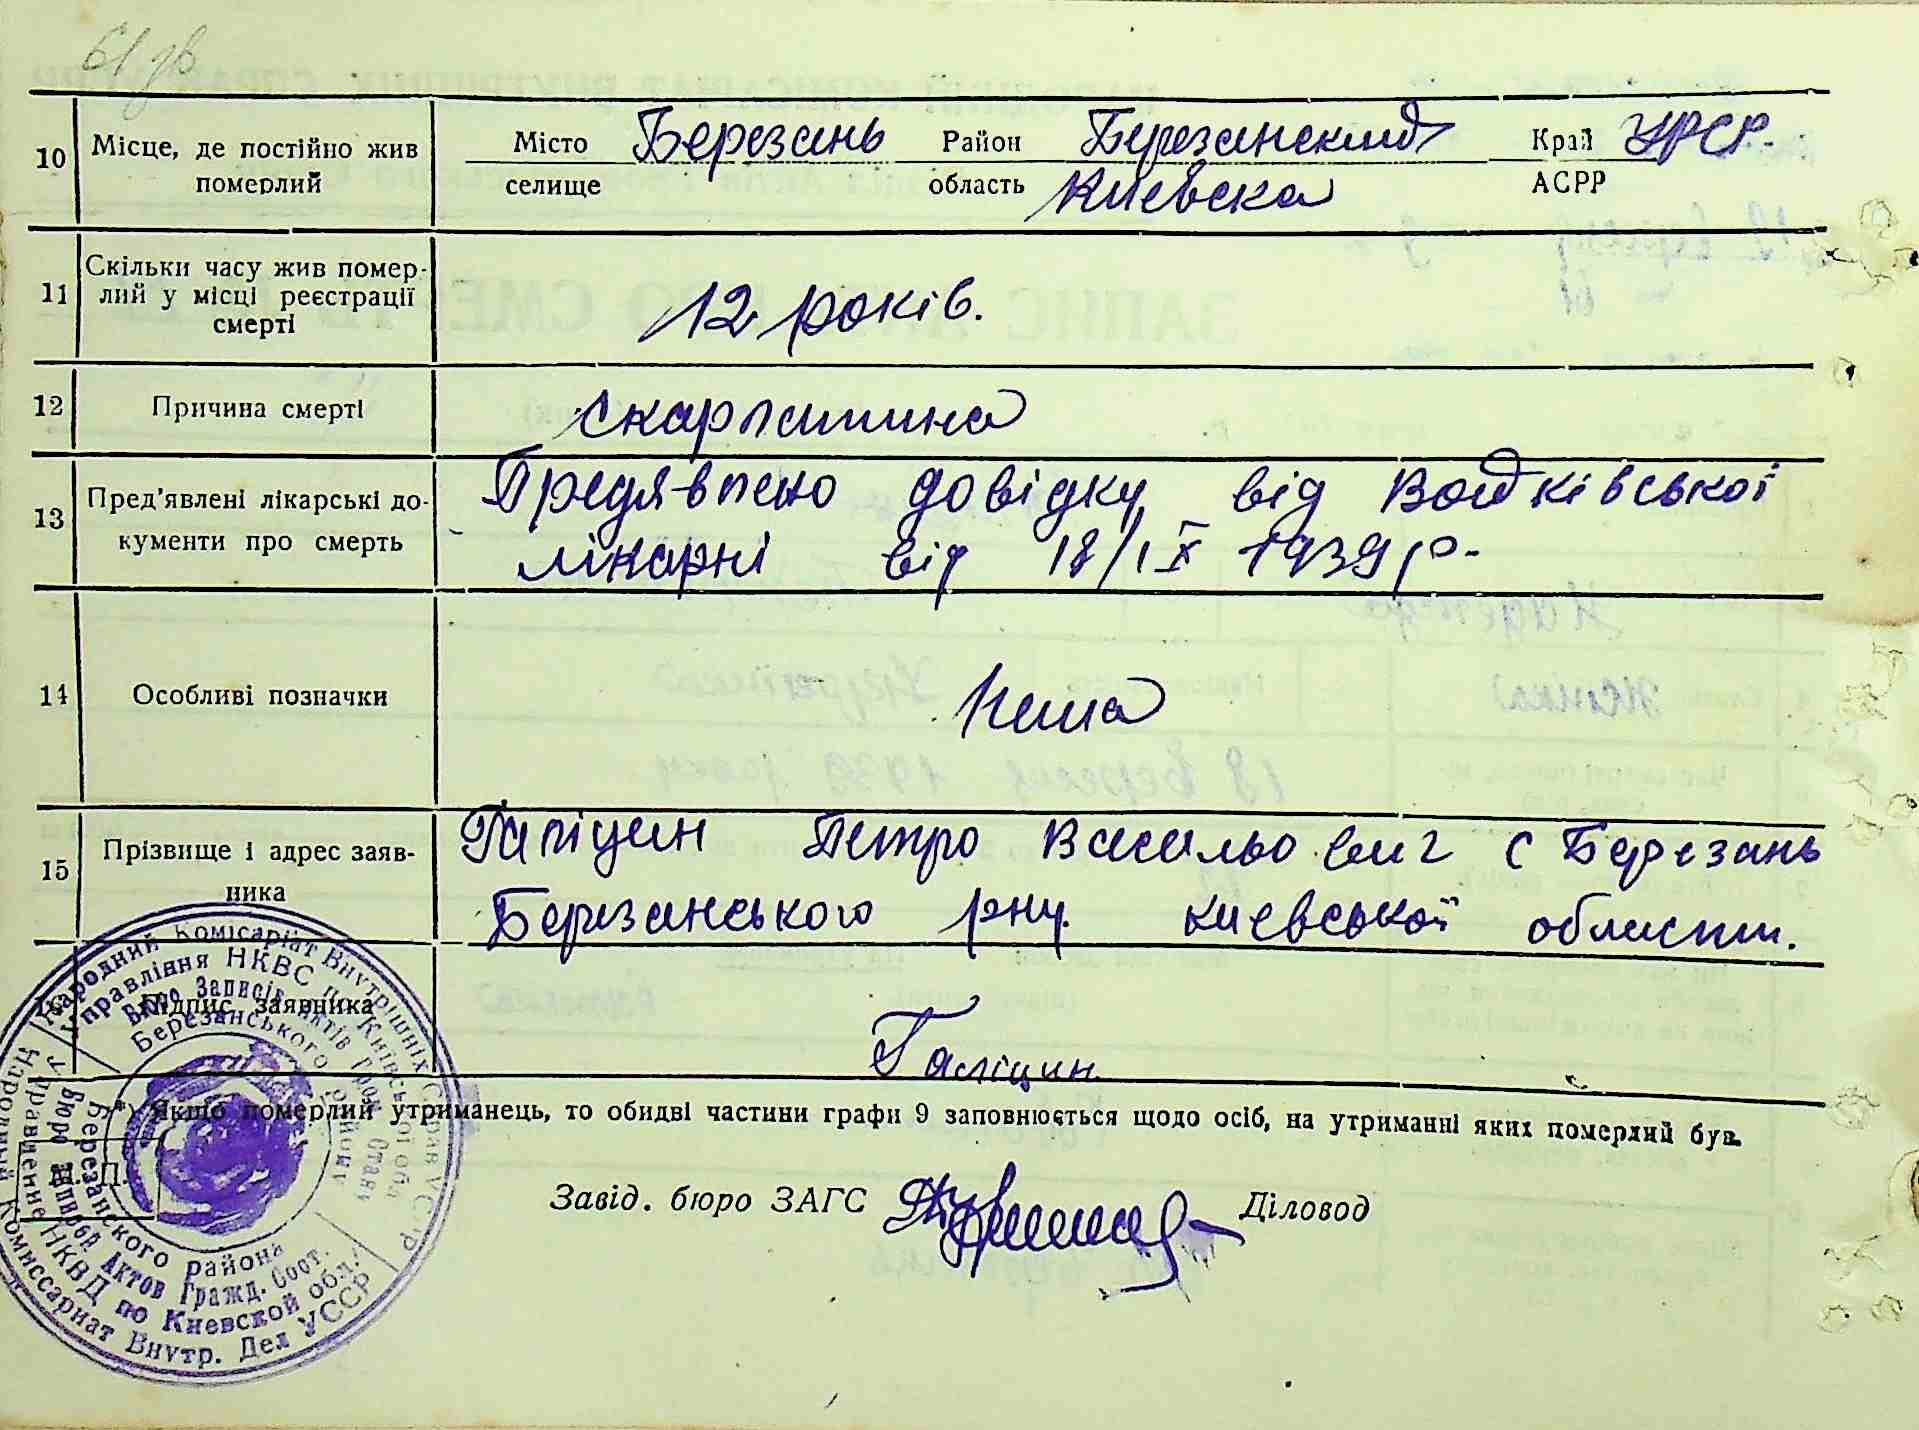 61 зв
10 Місце, де постійно жив померлий
Місто селище Березань Район область Березанский Киевска Край АСРР УРСР.
11 Скільки часу жив помер-
лий у місці реєстрації
смерті
12 років.
12 Причина смерті скарлатина
13 Пред’явлені лікарські до-
кументи про смерть
Предявлено довідку від Войківської
лікарні від 18/IX 1939 р.
14 Особливі позначки Нема
15 Прізвище і адрес заяв-
ника
Галіцин Петро Васильович с Березань
Березанського рну. Киевської области.
16 Підпис заявника
Галіцин
*) Якщо померлий утриманець, то обидві частини графи 9 заповнюється щодо осіб, на утриманні яких померлий був.
М. П.
Завід. бюро ЗАГС Діловод
Народний Комісаріат Внутрішніх Справ УССР
Управління НКВС по Київській обл.
Бюро Записів актів Гром. Стану
Березанського району
Березанского района
Бюро Записей Актов Гражд. Сост.
Управление НКВД по Киевской обл.
Народный Комиссариат Внутр. Дел УССР